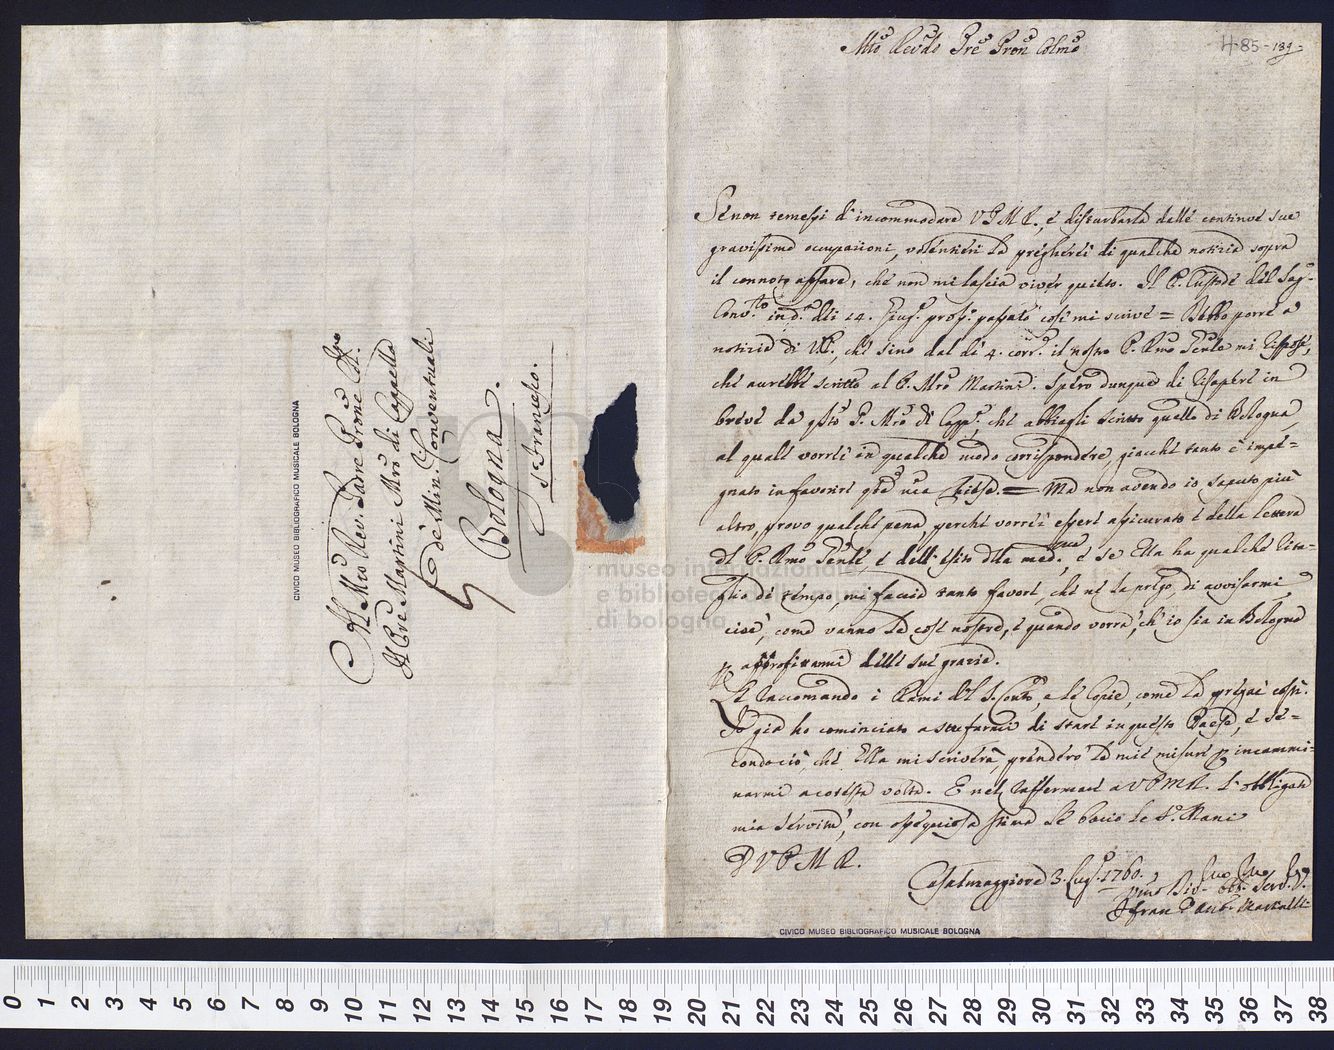 Al Mto Rev. Padre Prone
Il Pre Martini Mro di Cappella
de' Min. Conventuali
Bologna.
S. Francesco.
CIVICO MUSEO BIBLIOGRAFICO MUSICALE BOLOGNA
museo internazionale
e biblioteca della musica
di bologna
H-85-189-
Mto Revdo Pre Pron Colmo
Se non temessi d'incommodare V P M R., e disturbarla dalle continue sue
gravissime occupazioni, volentieri la pregherei di qualche notizia sopra
il connoto affare, che non mi lascia viver quieto. Il P. Custode del Sag.
Convto in d. dli 14. Giug. pross. passato così mi scrive = Debbo porre a
notizia di V.P., che sino dal dì 4. corr. il nostro P. Rmo Gente mi rispose,
che avrebbe scritto al P. Mro Martini. Spero dunque di risapere in
breve da qsto P. Mro di Capp. che abbiagli scritto quello di Bologna,
al quale vorrei in qualche modo corrispondere, giacche tanto è impe=
gnato in favorire qsta mia Chiesa. = Ma non avendo io saputo più
altro, provo qualche pena, perche vorrei essere assicurato e della lettera
del P. Rmo Gente, e dell'esito dlla med., e se Ella ha qualche rita=
glio di tempo, mi faccia tanto favore, che ne la prego, di avvisarmi,
cioè, come vanno le cose nostre, e quando vorrà, ch'io sia in Bologna
p approfittarmi delle sue grazie.
Le raccomando i Rami del S. Conto, e le Copie, come la pregai costì.
Io già ho cominciato a stufarmi di stare in questo Paese, e se=
condocio, che Ella mi scriverà, prenderò le mie misure p incammi=
narmi a cotesta volta. E nel raffermare a V P M R. l'obbligata
mia servitù, con ossequiosa stima le bacio le S. Mani
D V P M R.
Casalmaggiore 3. Lug. 1760.
Div. obb. Serv. V.
F. Fran. Ant.
CIVICO MUSEO BIBLIOGRAFICO MUSICALE BOLOGNA
0 1 2 3 4 5 6 7 8 9 10 11 12 13 14 15 16 17 18 19 20 21 22 23 24 25 26 27 28 29 30 31 32 33 34 35 36 37 38